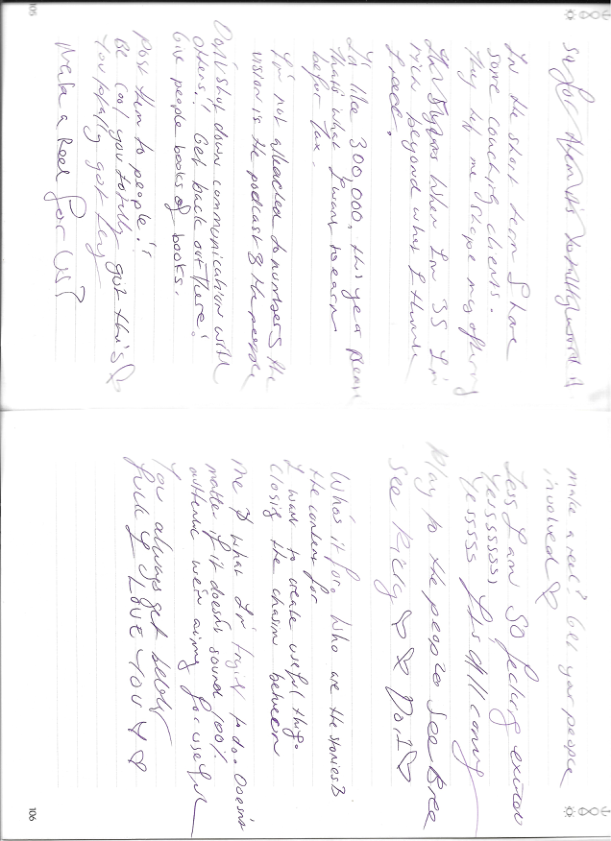 105
so for them it's totally worth it.
In the short term I have
some coaching clients.
They help me shape my offering
In 5 years when I'm 35 I'm
rich beyond what I think
I need.
I'd like 300,000, this year
that's what I want to earn
before tax.
I'm not attached to numbers the
vision is the podcast & the
Don't shut down communication with
others!! Get back out there!
Give people books of books.
Post them to people!!
Be cool you totally got this ♡
You totally got
Make a reel for us?
make a reel? Get your people
involved ♡
Yess I am SO feeling excited
Yesssssss,
Yesssss it's all coming
Play to the people see Bree
See Ricky ♡ ♡ Do it ♡
Who's it for. Who are the stories &
the content for
I want to create useful things
Closing the chasm between
me & what I'm trying to do. Doesn't
matter if it doesn't sound 100%
authentic we're aiming for useful
You always get
I LOVE YOU ♡
106